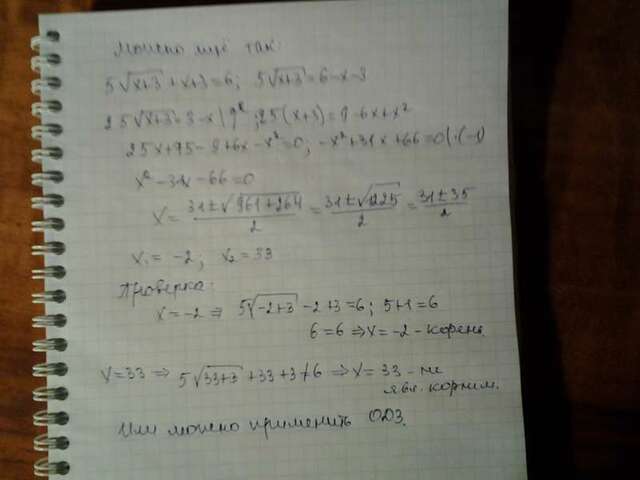 Можно ещё так:
5√(x+3) + x+3 = 6; 5√(x+3) = 6-x-3
25√(x+3) = 3-x |g²; 25(x+3) = 9-6x+x²
25x+75-9+6x-x²=0; -x²+31x+66=0 |·(-1)
x²-31x-66=0
x = (31±√(961+264))/2 = (31±√1225)/2 = (31±35)/2
x₁ = -2; x₂ = 33
Проверка:
x=-2 ⇒ 5√(-2+3) -2+3=6; 5+1=6
6=6 ⇒ x=-2 - корень
x=33 ⇒ 5√(33+3) +33+3≠6 ⇒ x=33 - не
явл. корнем.
Или можно применить ОДЗ.